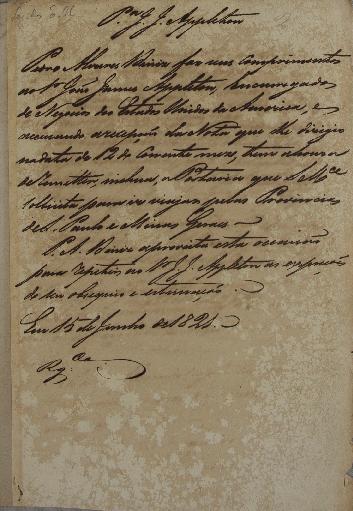 Pa J. J. Appleton
Pedro Alvares Diniz faz seus comprimentos
ao Sr. João James Appleton, Encarregado
de Negocios dos Estados Unidos da America, e
accusando a recepção da Nota que lhe dirigio
na data de 12 do corrente mez, tem a honra
de remetter, inclusa, a Portaria que S. Mce
solicita para ir viajar pelas Provincias
de S. Paulo e Minas Geraes
P. A. Diniz aproveita esta occasião
para repetir, ao Sr. J. J. Appleton as expressões
de seu obsequio e estimação.
Em 15 de Junho de 1821.